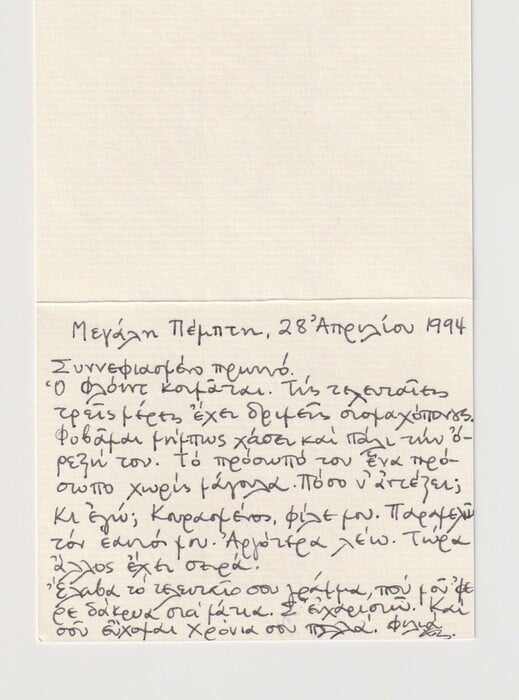 Μεγάλη Πέμπτη, 28 Ἀπριλίου 1994
Συννεφιασμένο πρωινό.
Ὁ Φλόυντ κοιμᾶται. Τίς τελευταῖες
τρεῖς μέρες ἔχει δριμεῖς στομαχόπονους.
Φοβᾶμαι μήπως χάσει καί πάλι τήν ὄ-
ρεξή του. Τό πρόσωπό του ἕνα πρό-
σωπο χωρίς μάγουλα. Πόσο ν' ἀντέξει;
Κι ἐγώ; Κουρασμένος, φίλε μου. Παραμελῶ
τόν ἑαυτό μου. Ἀργότερα λέω. Τώρα
ἄλλος ἔχει σειρά.
Ἔλαβα τό τελευταῖο σου γράμμα, πού μοῦ φε
ρε δάκρυα στά μάτια. Σ' εὐχαριστῶ. Καί
σοῦ εὔχομαι Χρόνια σου πολλά. Φιλιά